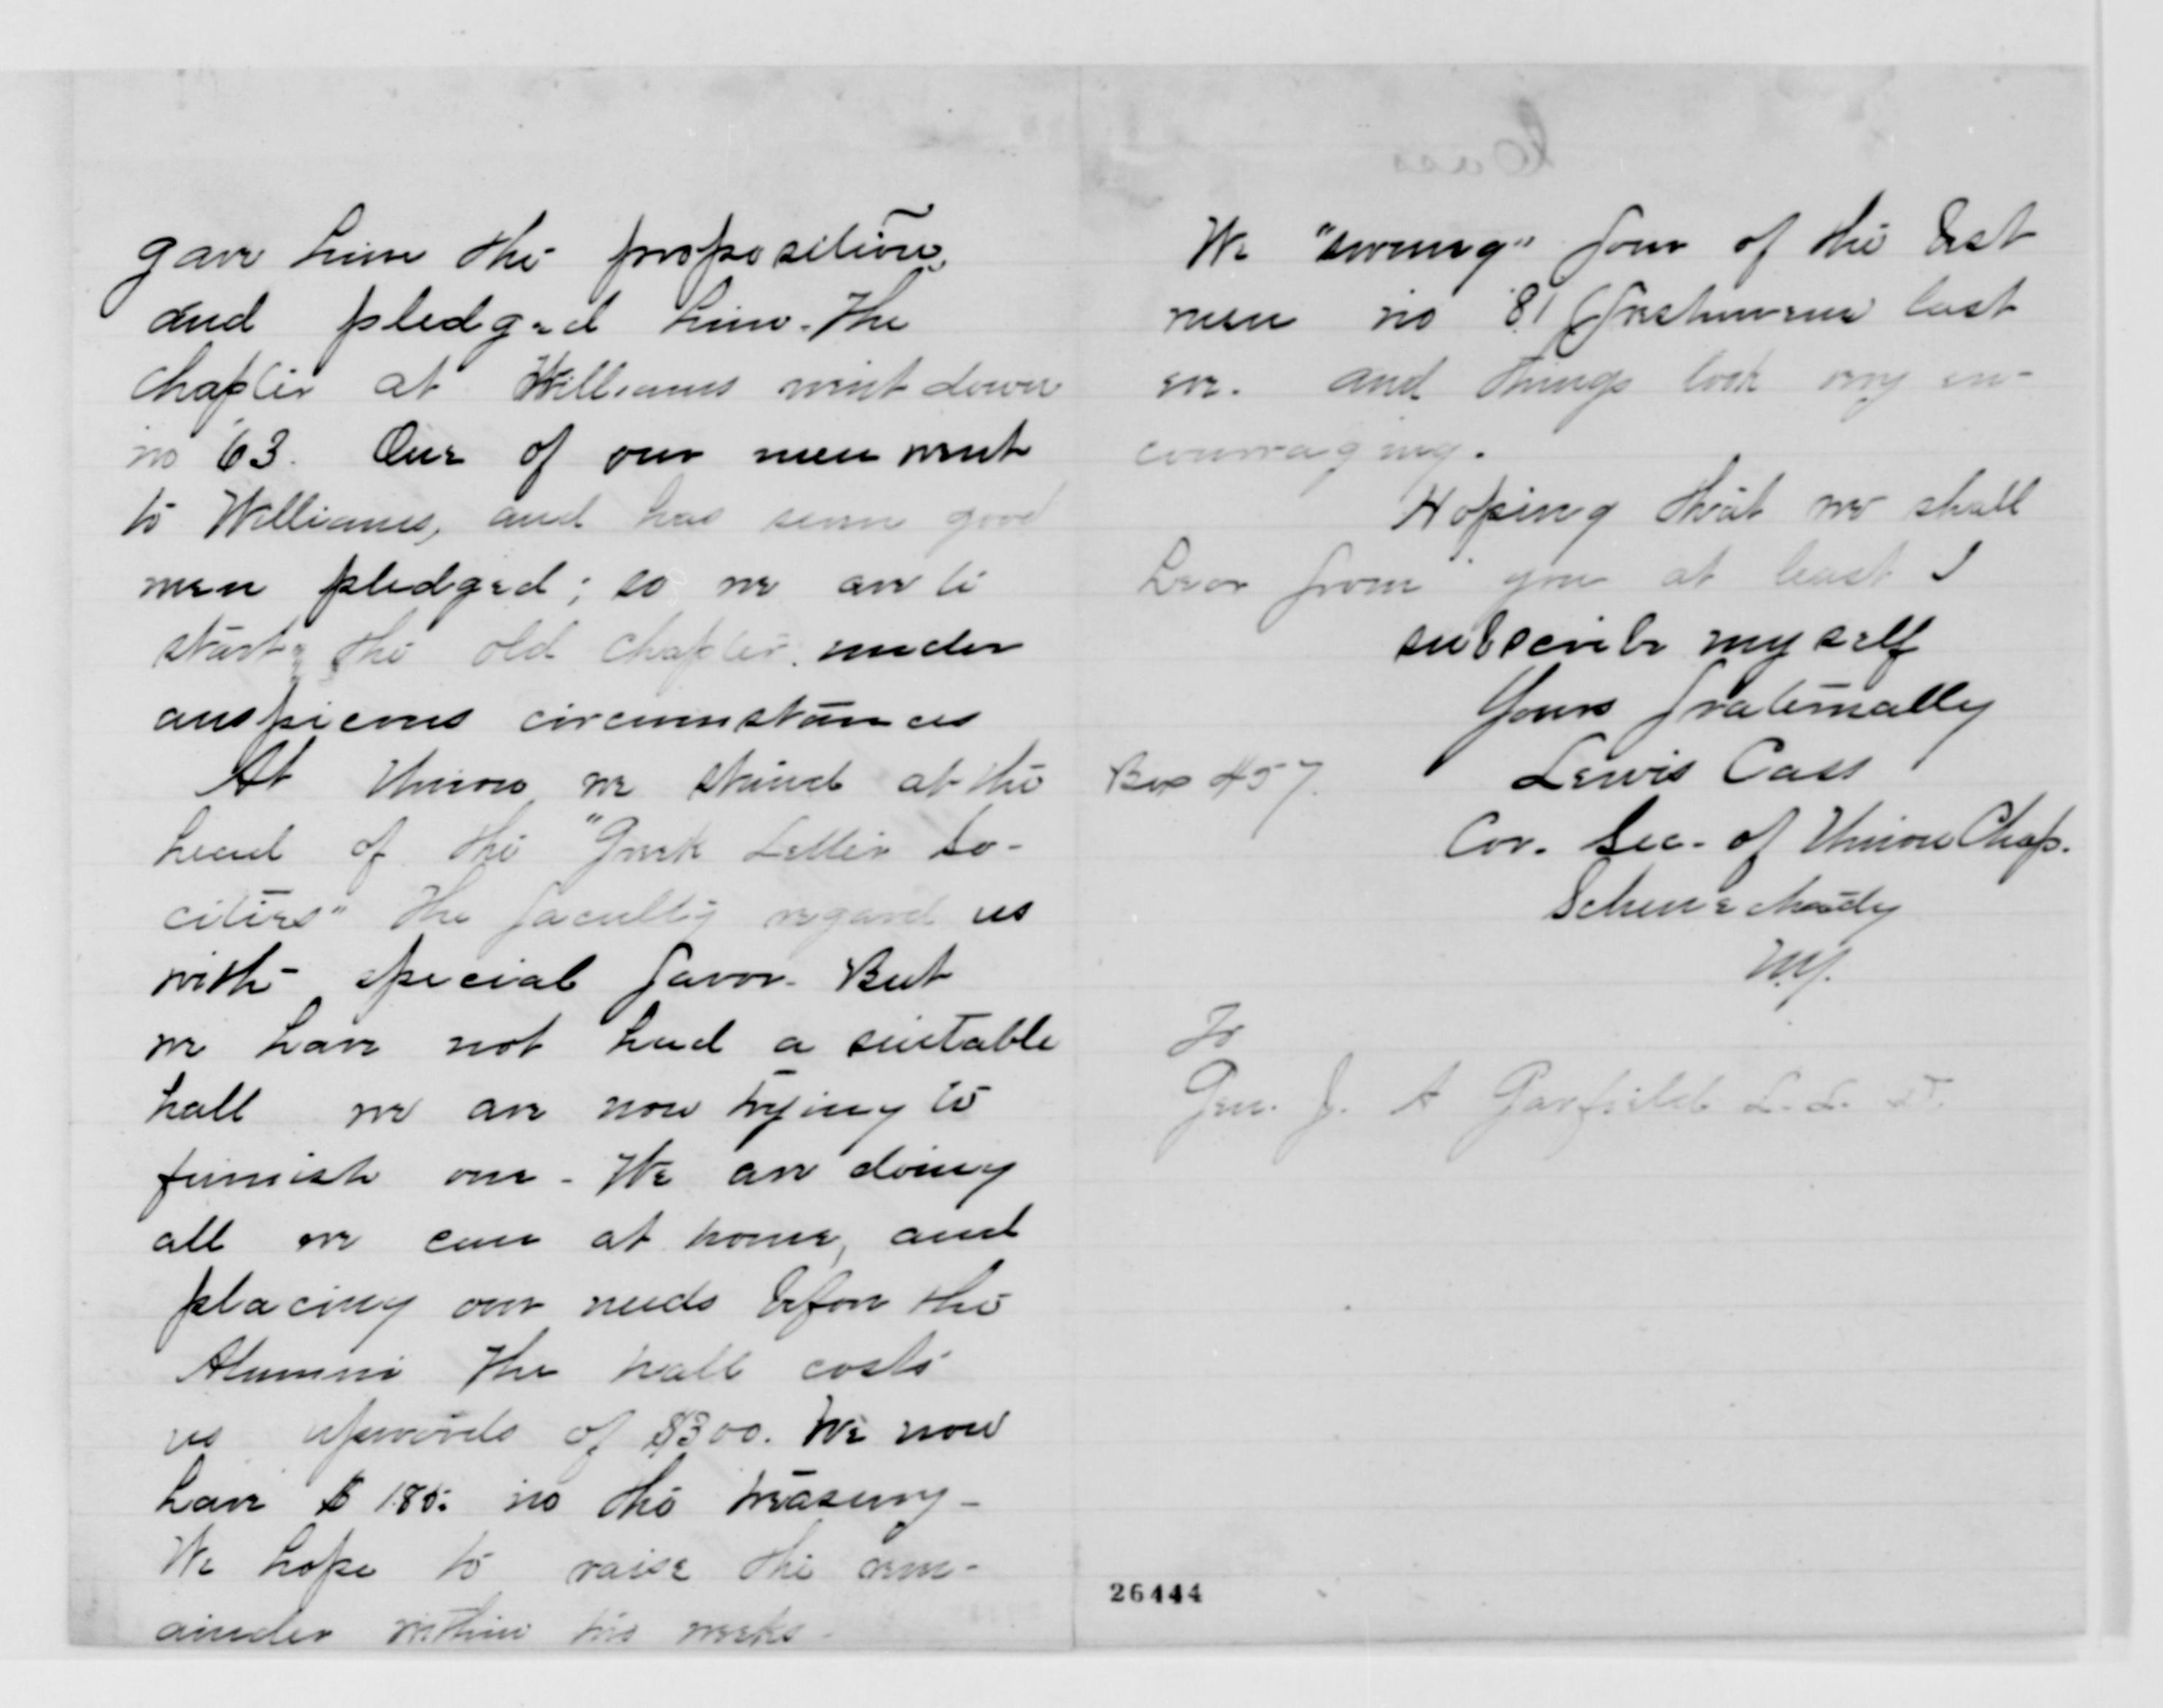 gave him the proposition,
and pledged him. The
chapter at Williams went down
in '63. One of our men went
to Williams, and has seven good
men pledged; so we are to
start the old chapter under
auspicious circumstances
At Union we stand at the
head of the "Greek Letter So-
cities" The faculty regard us
with special favor. But
we have not had a suitable
hall we are now trying to
furnish one. We are doing
all we can at home, and
placing our needs before the
Alumni The hall costs
us upwards of $300. We now
have $185. in the treasury -
We hope to raise the rem-
ainder within two weeks.
We "swung" four of the best
men in '81 (Freshmen) last
eve. and things look very en-
couraging.
Hoping that we shall
hear from you at least I
subscribe myself
Yours fraternally
Box 457. Lewis Cass
Cor. Sec. of Union Chap.
Schenectady
N.Y.
To
Gen. J. A Garfield L. L. D.
26444